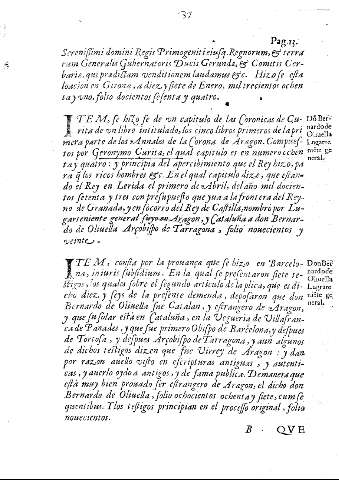 37
Pag. 13.
Serenissimi domini Regis Primogeniti eiusq; Regnorum, & terra
rum Generalis Gubernatoris Ducis Gerundæ, & Comitis Cer-
bariæ. qui prædictam venditionem laudamus &c. Hizose esta
loacion en Girona, a diez, y siete de Enero, mil trecientos ochen
ta y uno, folio docientos sesenta y quatro.
ITEM, se hizo fe de vn capitulo de las Coronicas de Cu-
rita de vn libro intitulado, los cinco libros primeros de la pri
mera parte de los Annales de la Corona de Aragon. Compues-
tos por Geronymo Curita, el qual capitulo es en numero ochen
ta y quatro: y principia del apercebimiento que el Rey hizo, pa
ra q̃ los ricos hombres &c. En el qual capitulo dize, que estan-
do el Rey en Lerida el primero de Abril, del año mil docien-
tos setenta y tres con presupuesto que yua a la frontera del Rey-
no de Granada, y en socorro del Rey de Castilla, nombrò por Lu-
garteniente general suyo en Aragon, y Cataluña a don Bernar-
do de Oliuella Arçobispo de Tarragona, folio nouecientos y
veinte.
Dō Ber
nardo de
Oliuella
Lugarte
niēte ge
neral.
ITEM, consta por la prouança que se hizo en Barcelo-
na, in iuris subsidium. En la qual se presentaron siete te-
stigos, los quales sobre el segundo articulo de la plica, que es di-
cho diez, y seys de la presente demanda, deposaron que don
Bernardo de Oliuella fue Catalan, y estrangero de Aragon,
y que su solar està en Cataluña, en la Vegueria de Villafran-
ca de Panades, y que fue primero Obispo de Barcelona, y despues
de Tortosa, y despues Arçobispo de Tarragona, y aun algunos
de dichos testigos dizen que fue Virrey de Aragon: y dan
por razon auello visto en escripturas antiguas, y autenti-
cas, y auerlo oydo a antigos, y de fama publica. De manera que
està muy bien prouado ser estrangero de Aragon, el dicho don
Bernardo de Oliuella, folio ochocientos ochenta y siete, cum se
quentibus. Y los testigos principian en el processo original, folio
nouecientos.
Don Ber
nardo de
Oliuella
Lugarte
niēte ge
neral.
B QVE